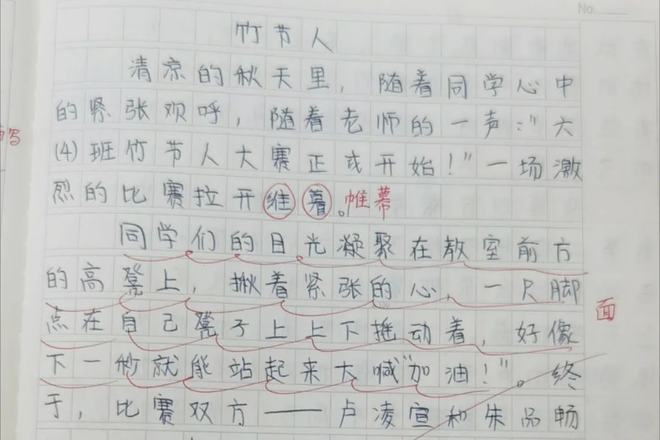 No.
竹节人
清凉的秋天里，随着同学心中
的紧张欢呼，随着老师的一声："六
(4)班竹节人大赛正式开始！"一场激
烈的比赛拉开维幕。帷幕
同学们的目光凝聚在教室前方
的高凳上，揪着紧张的心，一只脚
面
点在自己凳子上上下摇动着，好像
下一秒就能站起来大喊"加油！"。终
于，比赛双方——卢凌宣和朱品畅